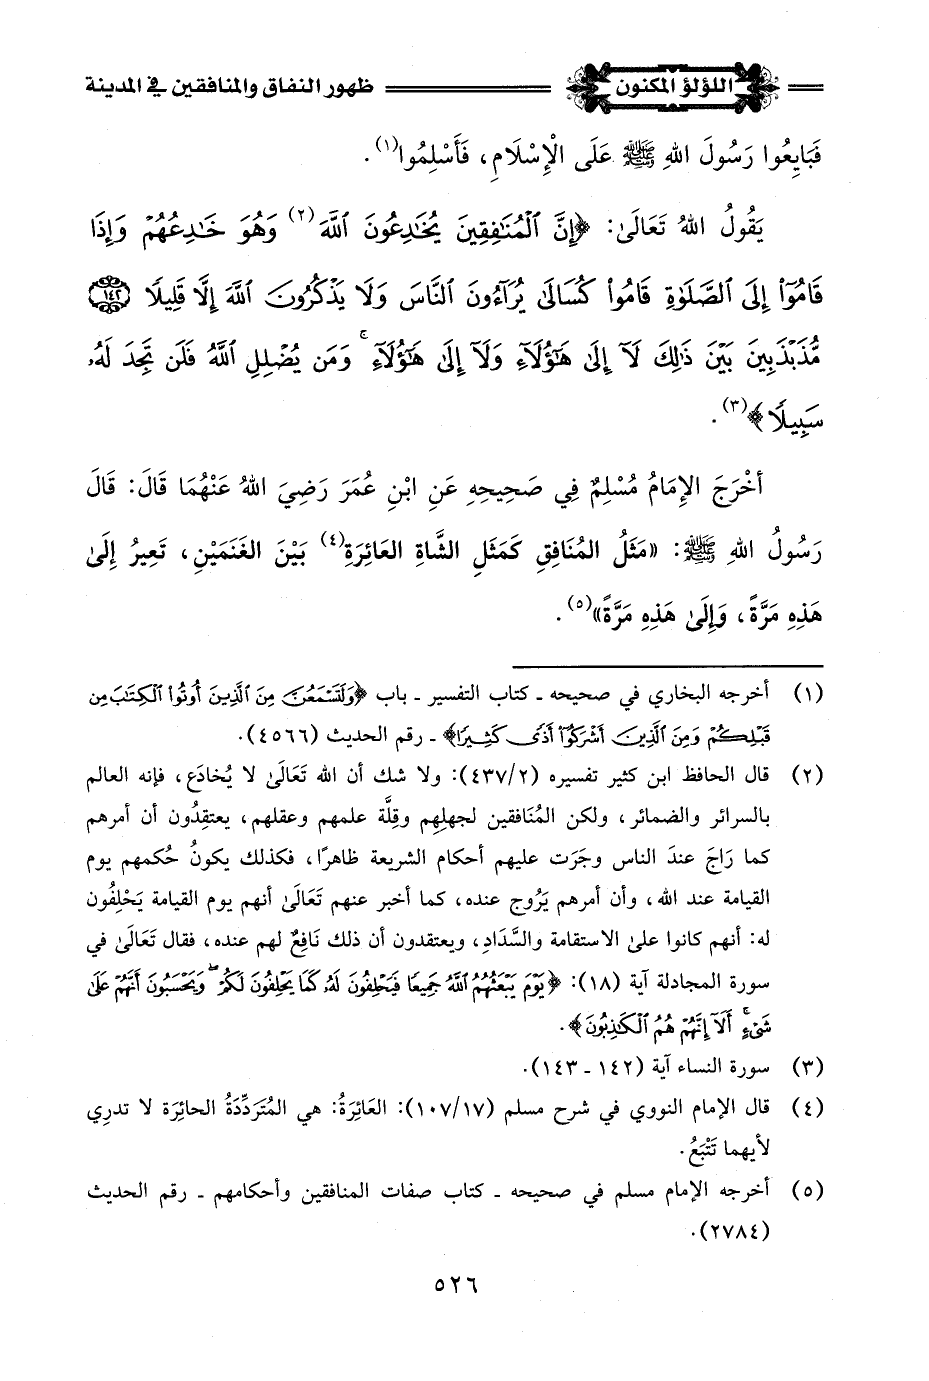 اللؤلؤ المكنون ظهور النفاق والمنافقين في المدينة
فَبَايِعُوا رَسُولَ اللهِ ﷺ عَلَى الْإِسْلَامِ، فَأَسْلِمُوا(١).
يَقُولُ اللهُ تَعَالَىٰ: ﴿إِنَّ ٱلْمُنَٰفِقِينَ يُخَٰدِعُونَ ٱللَّهَ(٢) وَهُوَ خَٰدِعُهُمْ وَإِذَا
قَامُوٓا۟ إِلَى ٱلصَّلَوٰةِ قَامُوا۟ كُسَالَىٰ يُرَآءُونَ ٱلنَّاسَ وَلَا يَذْكُرُونَ ٱللَّهَ إِلَّا قَلِيلًا ١٤٢
مُّذَبْذَبِينَ بَيْنَ ذَٰلِكَ لَآ إِلَىٰ هَٰٓؤُلَآءِ وَلَآ إِلَىٰ هَٰٓؤُلَآءِ ۚ وَمَن يُضْلِلِ ٱللَّهُ فَلَن تَجِدَ لَهُۥ
سَبِيلًا﴾(٣).
أَخْرَجَ الإِمَامُ مُسْلِمٌ فِي صَحِيحِهِ عَنِ ابْنِ عُمَرَ رَضِيَ اللهُ عَنْهُمَا قَالَ: قَالَ
رَسُولُ اللهِ ﷺ: «مَثَلُ المُنَافِقِ كَمَثَلِ الشَّاةِ العَائِرَةِ(٤) بَيْنَ الغَنَمَيْنِ، تَعِيرُ إِلَىٰ
هَذِهِ مَرَّةً، وَإِلَىٰ هَذِهِ مَرَّةً»(٥).
(١) أخرجه البخاري في صحيحه ـ كتاب التفسير ـ باب ﴿وَلَتَسْمَعُنَّ مِنَ ٱلَّذِينَ أُوتُوا۟ ٱلْكِتَٰبَ مِن
قَبْلِكُمْ وَمِنَ ٱلَّذِينَ أَشْرَكُوٓا۟ أَذًى كَثِيرًا﴾ ـ رقم الحديث (٤٥٦٦).
(٢) قال الحافظ ابن كثير تفسيره (٤٣٧/٢): ولا شك أن الله تَعَالَىٰ لا يُخادَع، فإنه العالم
بالسرائر والضمائر، ولكن المُنافقين لجهلِهِم وقِلَّة علمهم وعقلهم، يعتقِدُون أن أمرهم
كما رَاجَ عندَ الناس وجَرَت عليهم أحكام الشريعة ظاهرًا، فكذلك يكونُ حُكمهم يوم
القيامة عند الله، وأن أمرهم يَرُوج عنده، كما أخبر عنهم تَعَالَىٰ أنهم يوم القيامة يَحْلِفُون
له: أنهم كانوا علىٰ الاستقامة والسَّدَادِ، ويعتقدون أن ذلك نَافِعٌ لهم عنده، فقال تَعَالَىٰ في
سورة المجادلة آية (١٨): ﴿يَوْمَ يَبْعَثُهُمُ ٱللَّهُ جَمِيعًا فَيَحْلِفُونَ لَهُۥ كَمَا يَحْلِفُونَ لَكُمْ ۖ وَيَحْسَبُونَ أَنَّهُمْ عَلَىٰ
شَىْءٍ ۚ أَلَآ إِنَّهُمْ هُمُ ٱلْكَٰذِبُونَ﴾.
(٣) سورة النساء آية (١٤٢ ـ ١٤٣).
(٤) قال الإمام النووي في شرح مسلم (١٠٧/١٧): العَائِرَةُ: هي المُتَردِّدَةُ الحائِرَة لا تدرِي
لأيهما تَتْبَعُ.
(٥) أخرجه الإمام مسلم في صحيحه ـ كتاب صفات المنافقين وأحكامهم ـ رقم الحديث
(٢٧٨٤).
٥٢٦